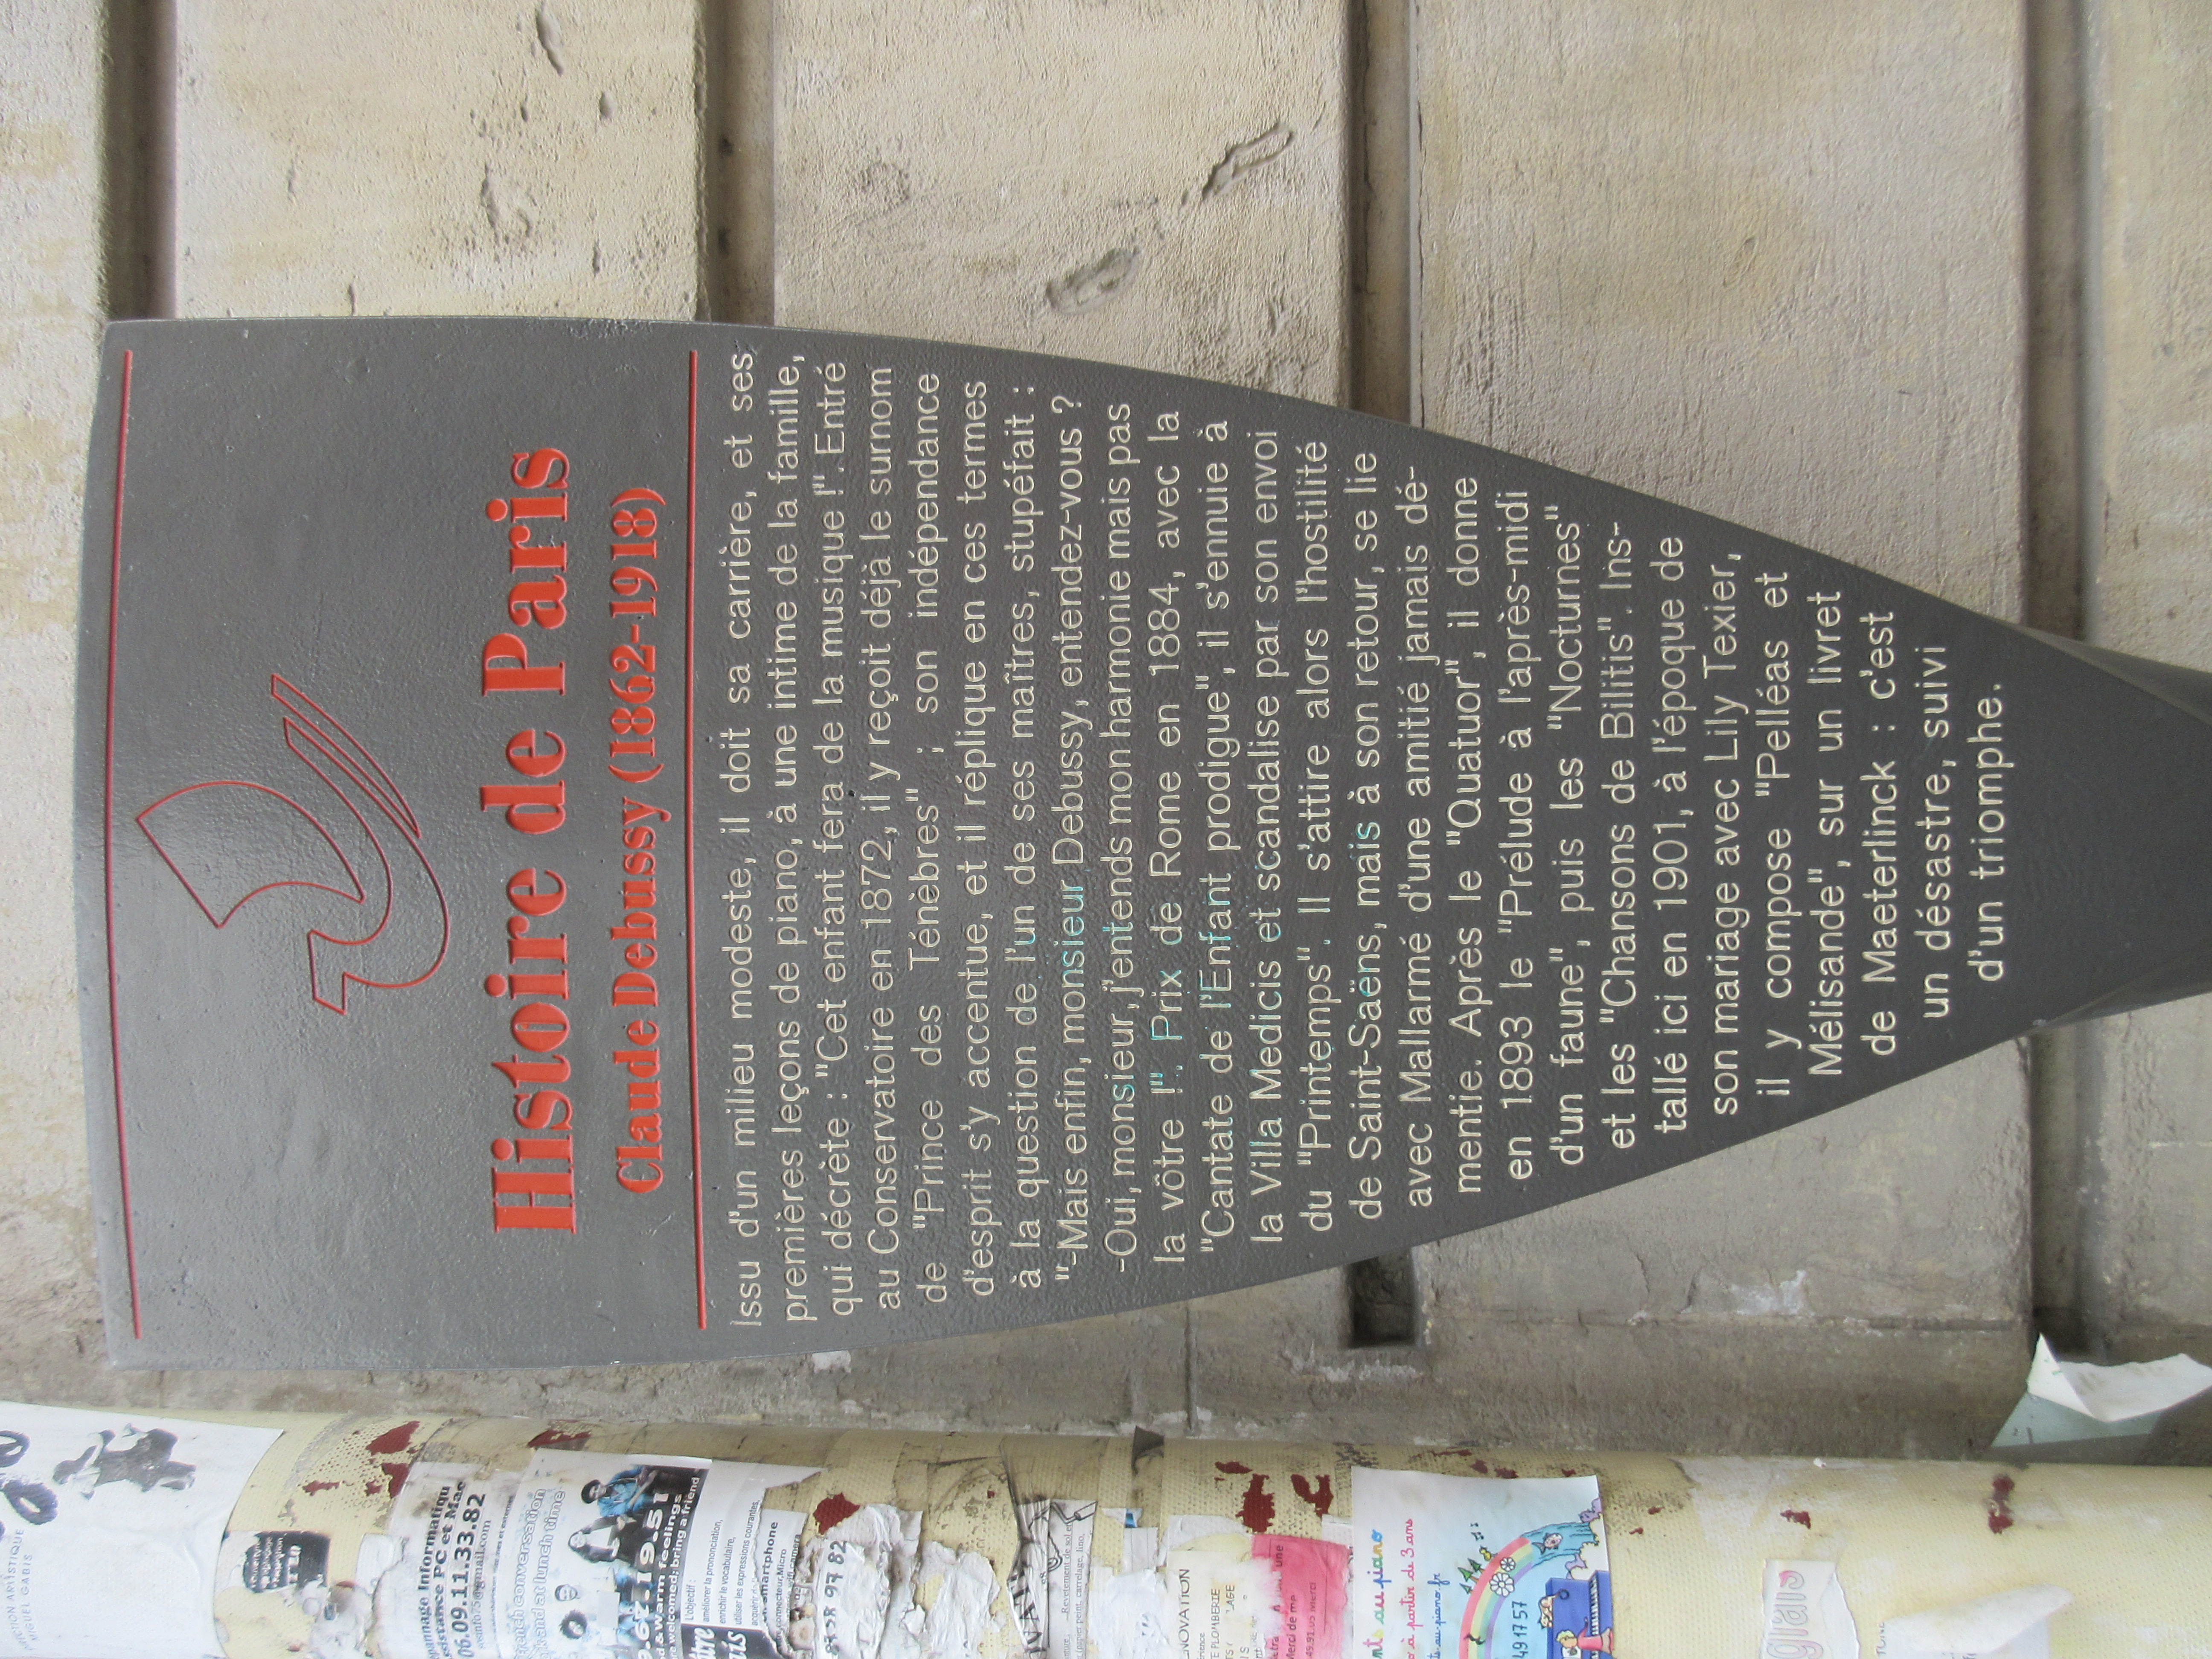 Histoire de Paris
Claude Debussy (1862-1918)
Issu d'un milieu modeste, il doit sa carrière, et ses
premières leçons de piano, à une intime de la famille,
qui décrète : "Cet enfant fera de la musique !". Entré
au Conservatoire en 1872, il y reçoit déjà le surnom
de "Prince des Ténèbres" ; son indépendance
d'esprit s'y accentue, et il réplique en ces termes
à la question de l'un de ses maîtres, stupéfait :
"-Mais enfin, monsieur Debussy, entendez-vous ?
-Oui, monsieur, j'entends mon harmonie mais pas
la vôtre !". Prix de Rome en 1884, avec la
"Cantate de l'Enfant prodigue", il s'ennuie à
la Villa Medicis et scandalise par son envoi
du "Printemps". Il s'attire alors l'hostilité
de Saint-Saëns, mais à son retour, se lie
avec Mallarmé d'une amitié jamais dé-
mentie. Après le "Quatuor", il donne
en 1893 le "Prélude à l'après-midi
d'un faune", puis les "Nocturnes"
et les "Chansons de Bilitis". Ins-
tallé ici en 1901, à l'époque de
son mariage avec Lilly Texier,
il y compose "Pelléas et
Mélisande", sur un livret
de Maeterlinck : c'est
un désastre, suivi
d'un triomphe.
ARTISTIQUE
06.09.11.33.82
PC et Mac
conversation
at lunch time
warm feelings
welcomed: bring a friend
L'objectif :
améliorer la prononciation,
enrichir le vocabulaire,
utiliser des expressions courantes,
smartphone
97 82
PLOMBERIE
Merci de me
au piano
à partir de 3 ans
491757